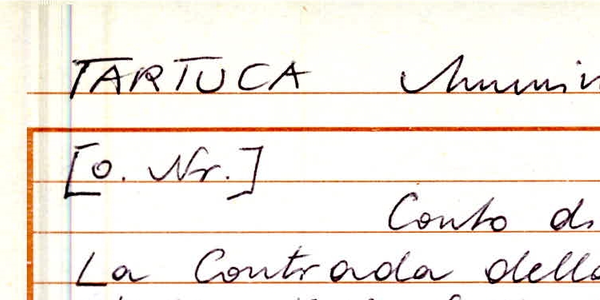 TARTUCA
[o. Nr.]
Conto di
La Contrada della